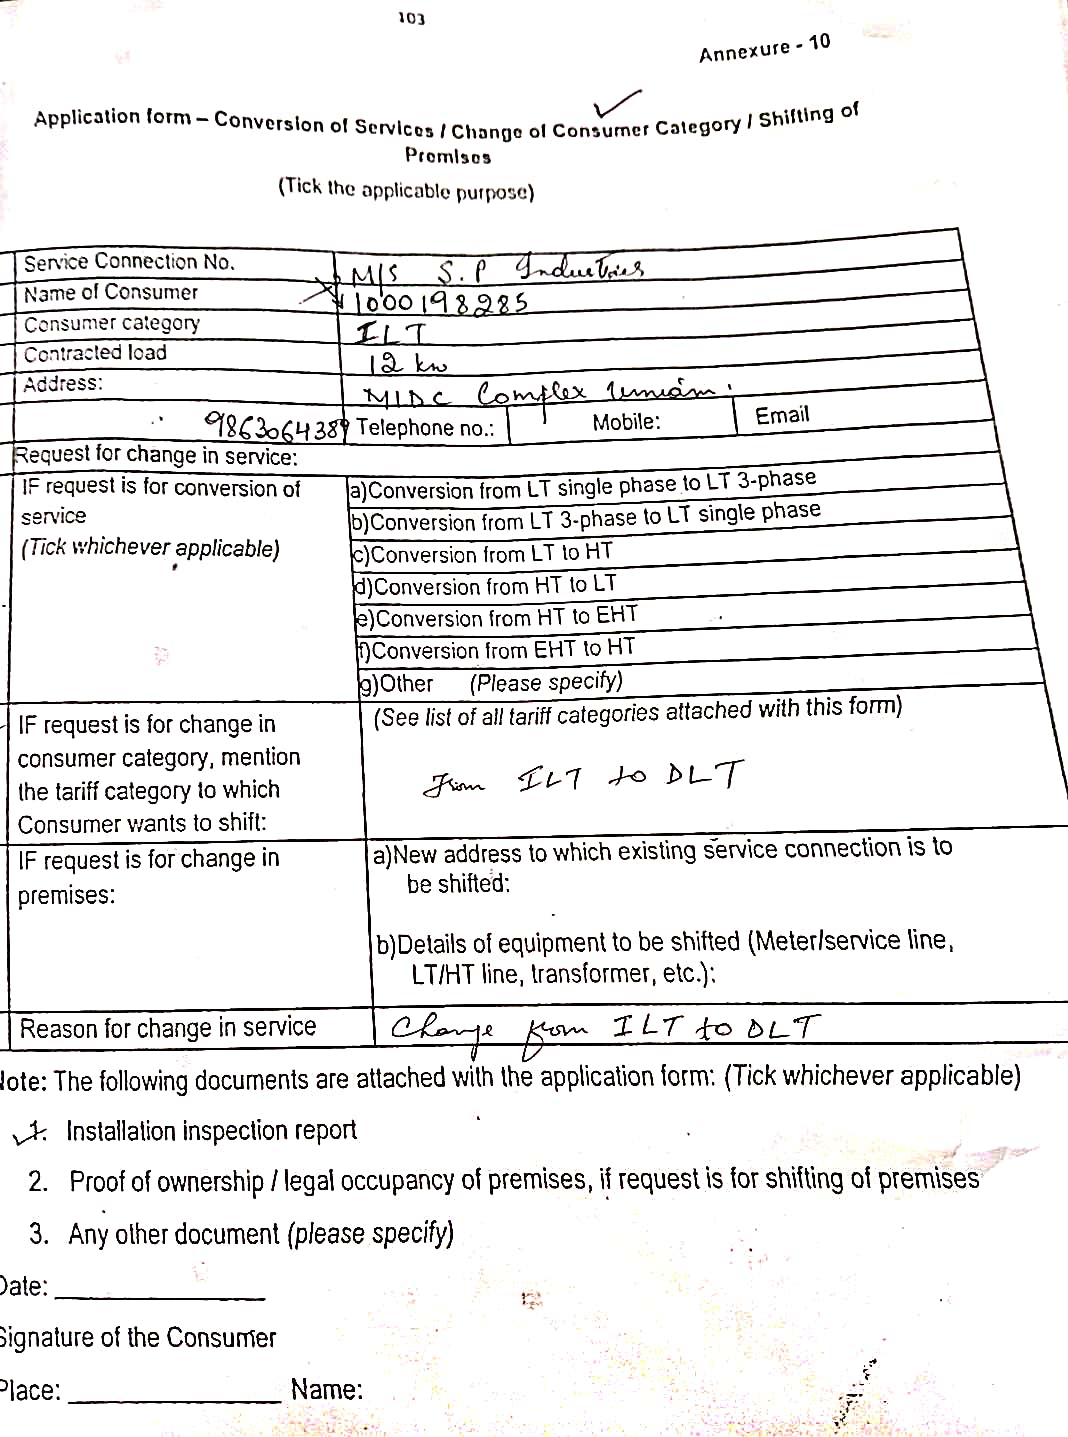 103
Annexure - 10
Application form – Conversion of Services / Change of Consumer Category / Shifting of
Premises
(Tick the applicable purpose)
Service Connection No. M/S S.P Industries
Name of Consumer 1000198285
Consumer category ILT
Contracted load 12 kw
Address: MIDC Complex
9863064389 Telephone no.: Mobile: Email
Request for change in service:
IF request is for conversion of
service
(Tick whichever applicable)
a)Conversion from LT single phase to LT 3-phase
b)Conversion from LT 3-phase to LT single phase
c)Conversion from LT to HT
d)Conversion from HT to LT
e)Conversion from HT to EHT
f)Conversion from EHT to HT
g)Other (Please specify)
IF request is for change in
consumer category, mention
the tariff category to which
Consumer wants to shift:
(See list of all tariff categories attached with this form)
From ILT to DLT
IF request is for change in
premises:
a)New address to which existing service connection is to
be shifted:
b)Details of equipment to be shifted (Meter/service line,
LT/HT line, transformer, etc.):
Reason for change in service Change from ILT to DLT
Note: The following documents are attached with the application form: (Tick whichever applicable)
1. Installation inspection report
2. Proof of ownership / legal occupancy of premises, if request is for shifting of premises
3. Any other document (please specify)
Date:
Signature of the Consumer
Place: Name: